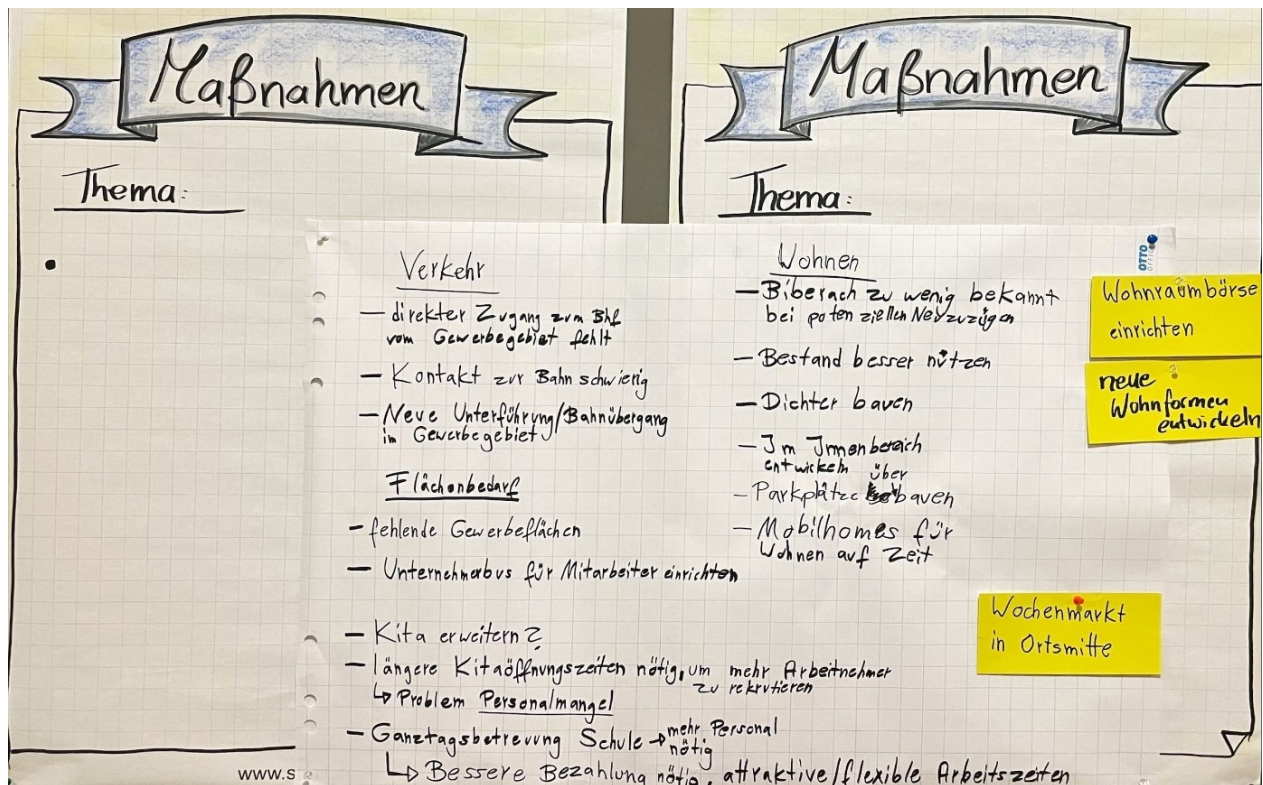 Maßnahmen
Thema:
Maßnahmen
Thema:
Verkehr
– direkter Zugang zum Bhf
vom Gewerbegebiet fehlt
– Kontakt zur Bahn schwierig
– Neue Unterführung/Bahnübergang
im Gewerbegebiet
Flächenbedarf
– fehlende Gewerbeflächen
– Unternehmerbus für Mitarbeiter einrichten
– Kita erweitern?
– längere Kitaöffnungszeiten nötig, um mehr Arbeitnehmer
zu rekrutieren
↳ Problem Personalmangel
– Ganztagsbetreuung Schule → mehr Personal
nötig
↳ Bessere Bezahlung nötig, attraktive/flexible Arbeitszeiten
Wohnen
– Biberach zu wenig bekannt
bei potenziellen Neuzuzügen
– Bestand besser nützen
– Dichter bauen
– Im Innenbereich
entwickeln
über
– Parkplätze bauen
– Mobilhomes für
Wohnen auf Zeit
OTTO
OFFICE
Wohnraumbörse
einrichten
neue
Wohnformen
entwickeln
Wochenmarkt
in Ortsmitte
www.s